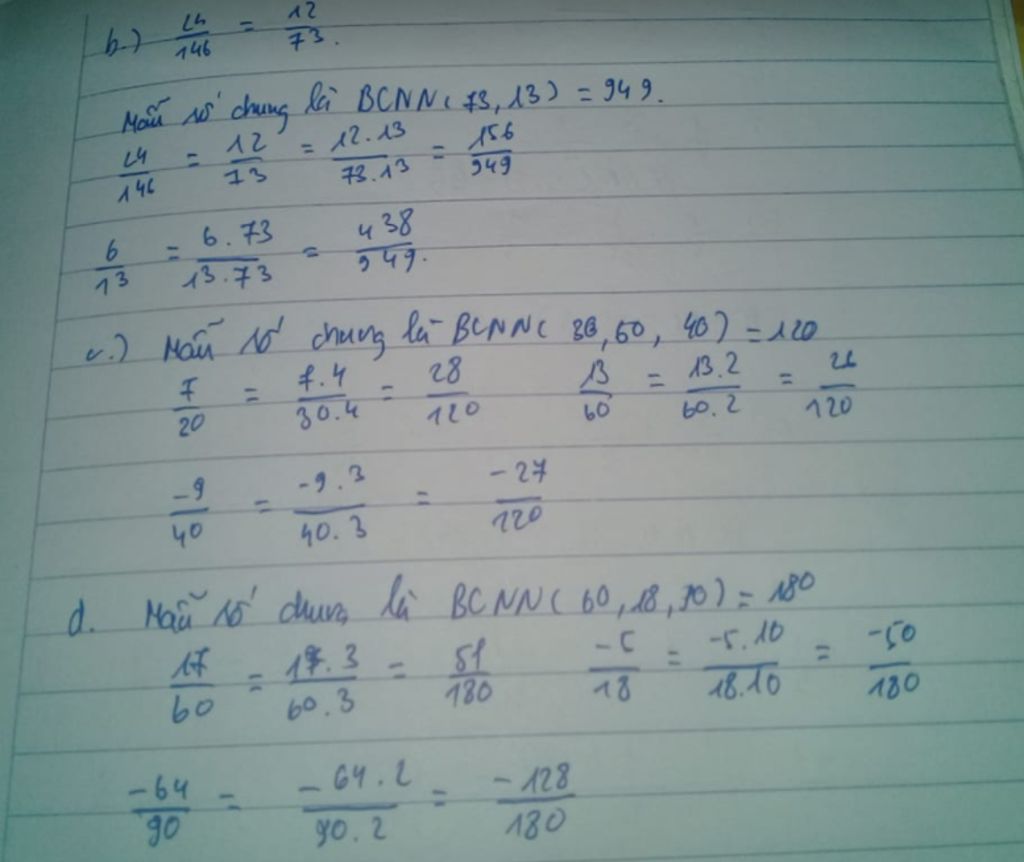 b.) 24/146 = 12/73.
Mẫu số chung là BCNN(73,13) = 949.
24/146 = 12/73 = 12.13/73.13 = 156/949
6/13 = 6.73/13.73 = 438/949.
c.) Mẫu số chung là BCNN(30,60, 40) = 120
7/20 = 7.4/30.4 = 28/120 13/60 = 13.2/60.2 = 26/120
-9/40 = -9.3/40.3 = -27/120
d. Mẫu số chung là BCNN(60,18,90) = 180
17/60 = 17.3/60.3 = 51/180 -5/18 = -5.10/18.10 = -50/180
-64/90 = -64.2/90.2 = -128/180